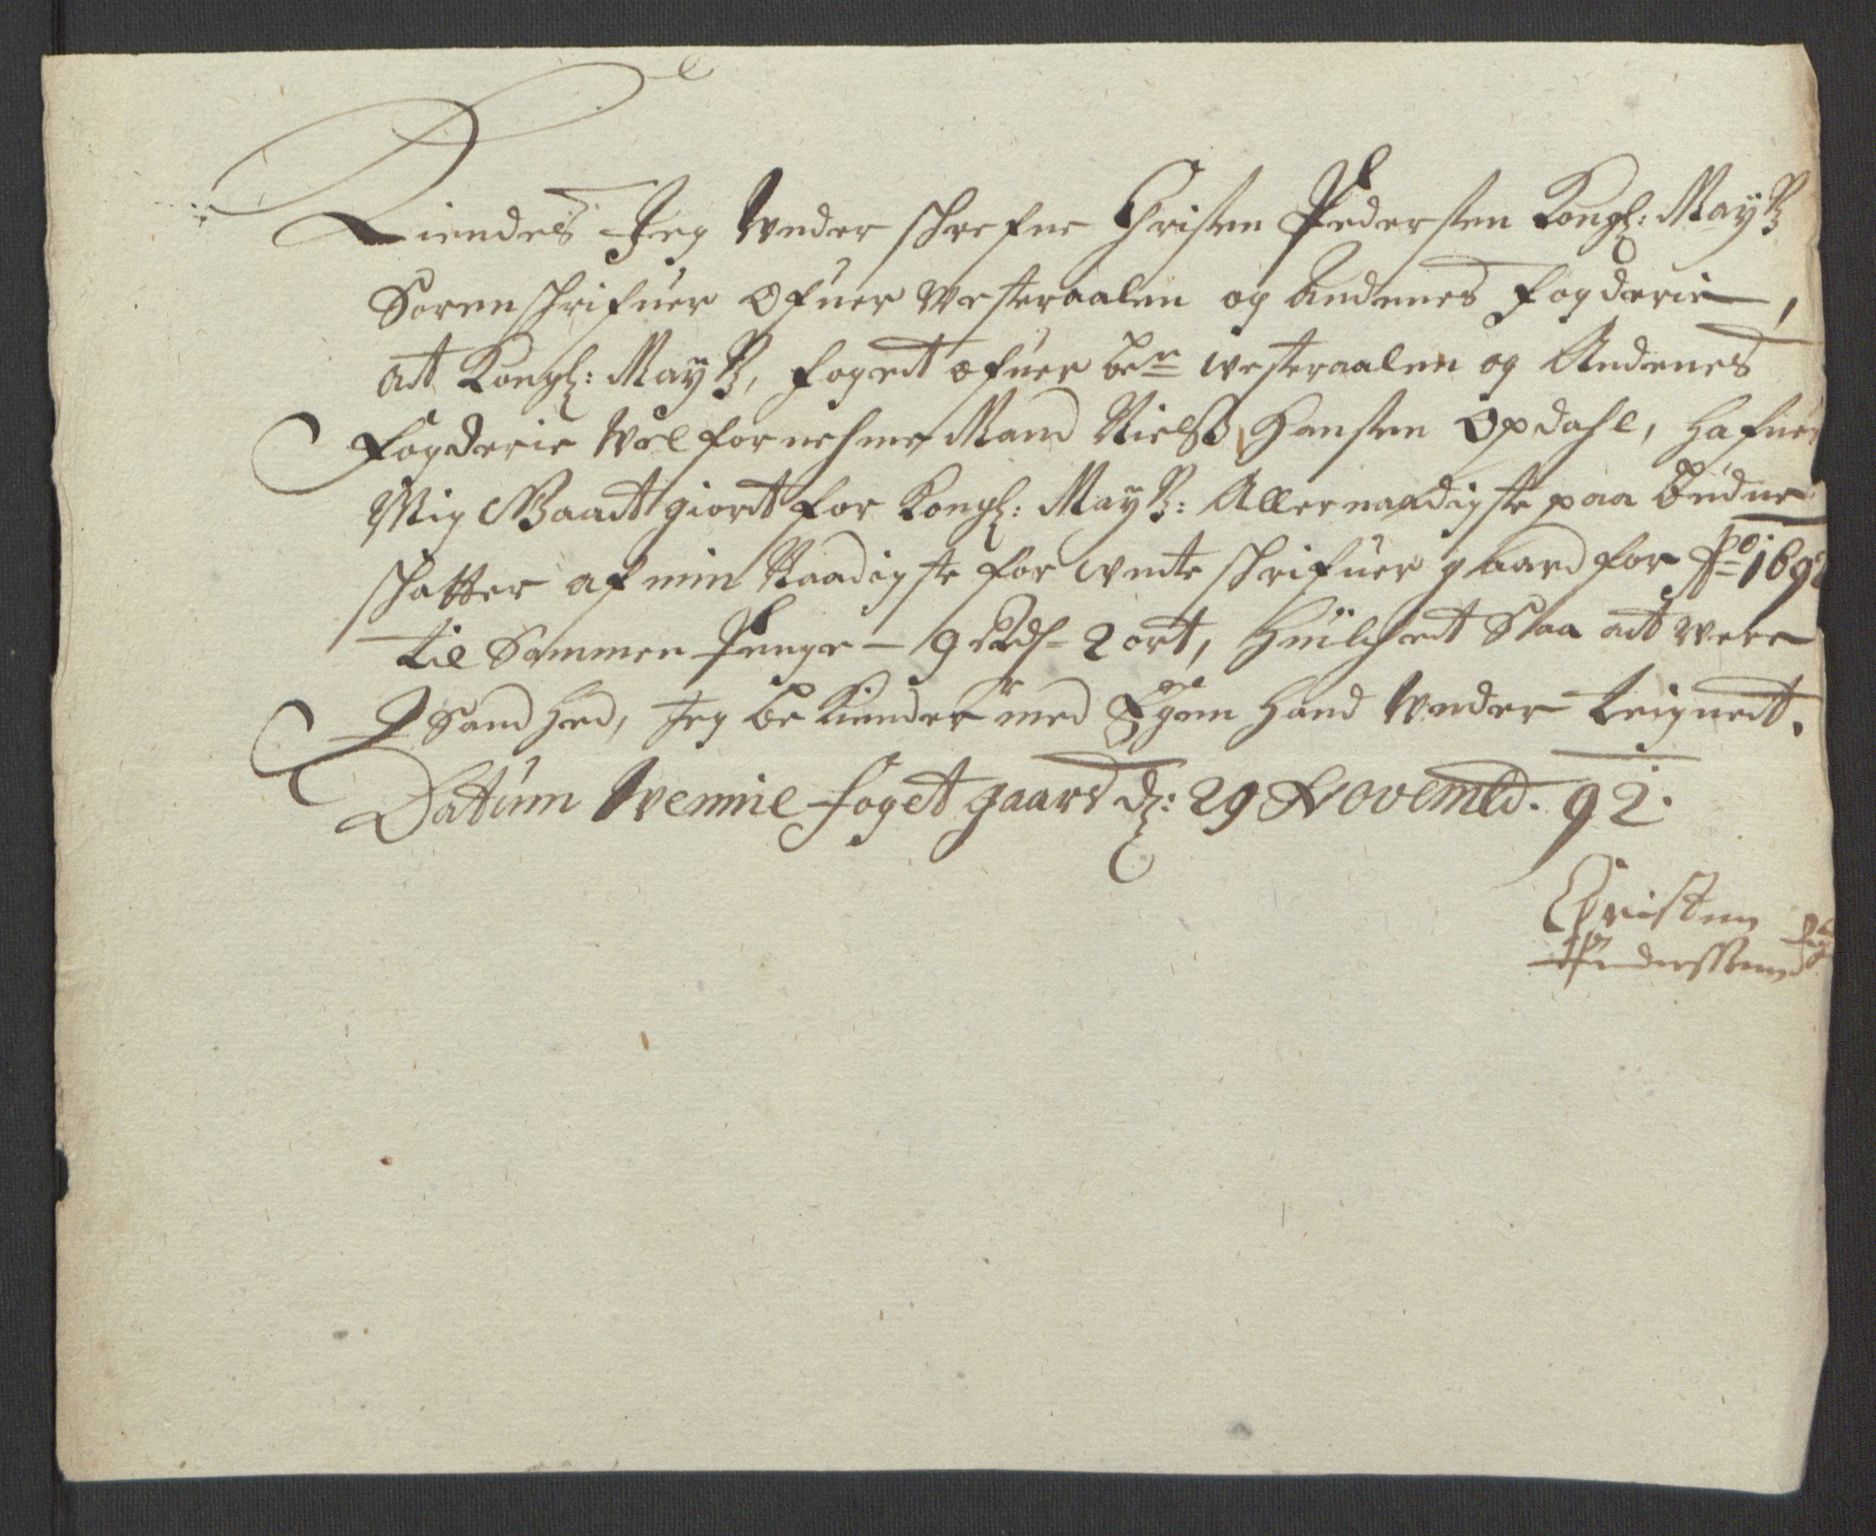 Kiendes Jeg Vnder schrefne Christen Pedersten Kongl: May ẞ
Sorenschrifuer Ofuer Westeraalen og Andenes Fogderie,
At Kongl: May ẞ, fogedt ofuer beᵐ Westeraalen og Andenes
Fogderie Vel fornehme Mand Nielß Hansten Opdahl, hafuer
Mig Baadt giordt for Kongl: May ẞ: Allernaadigste paa budne
schatter af min Naadigste for undte schrifuer gaard for Ao 1692
til Sammen Penge - 9 Rdr - 2 ort, Huilchedt Saa at Vere
Sandhed, Jeg be Kiender med Egen Hand Vnder teignedt.
Datum Vennie foget gaard d: 29 Novembr. 92.
Christen
Pederssenn